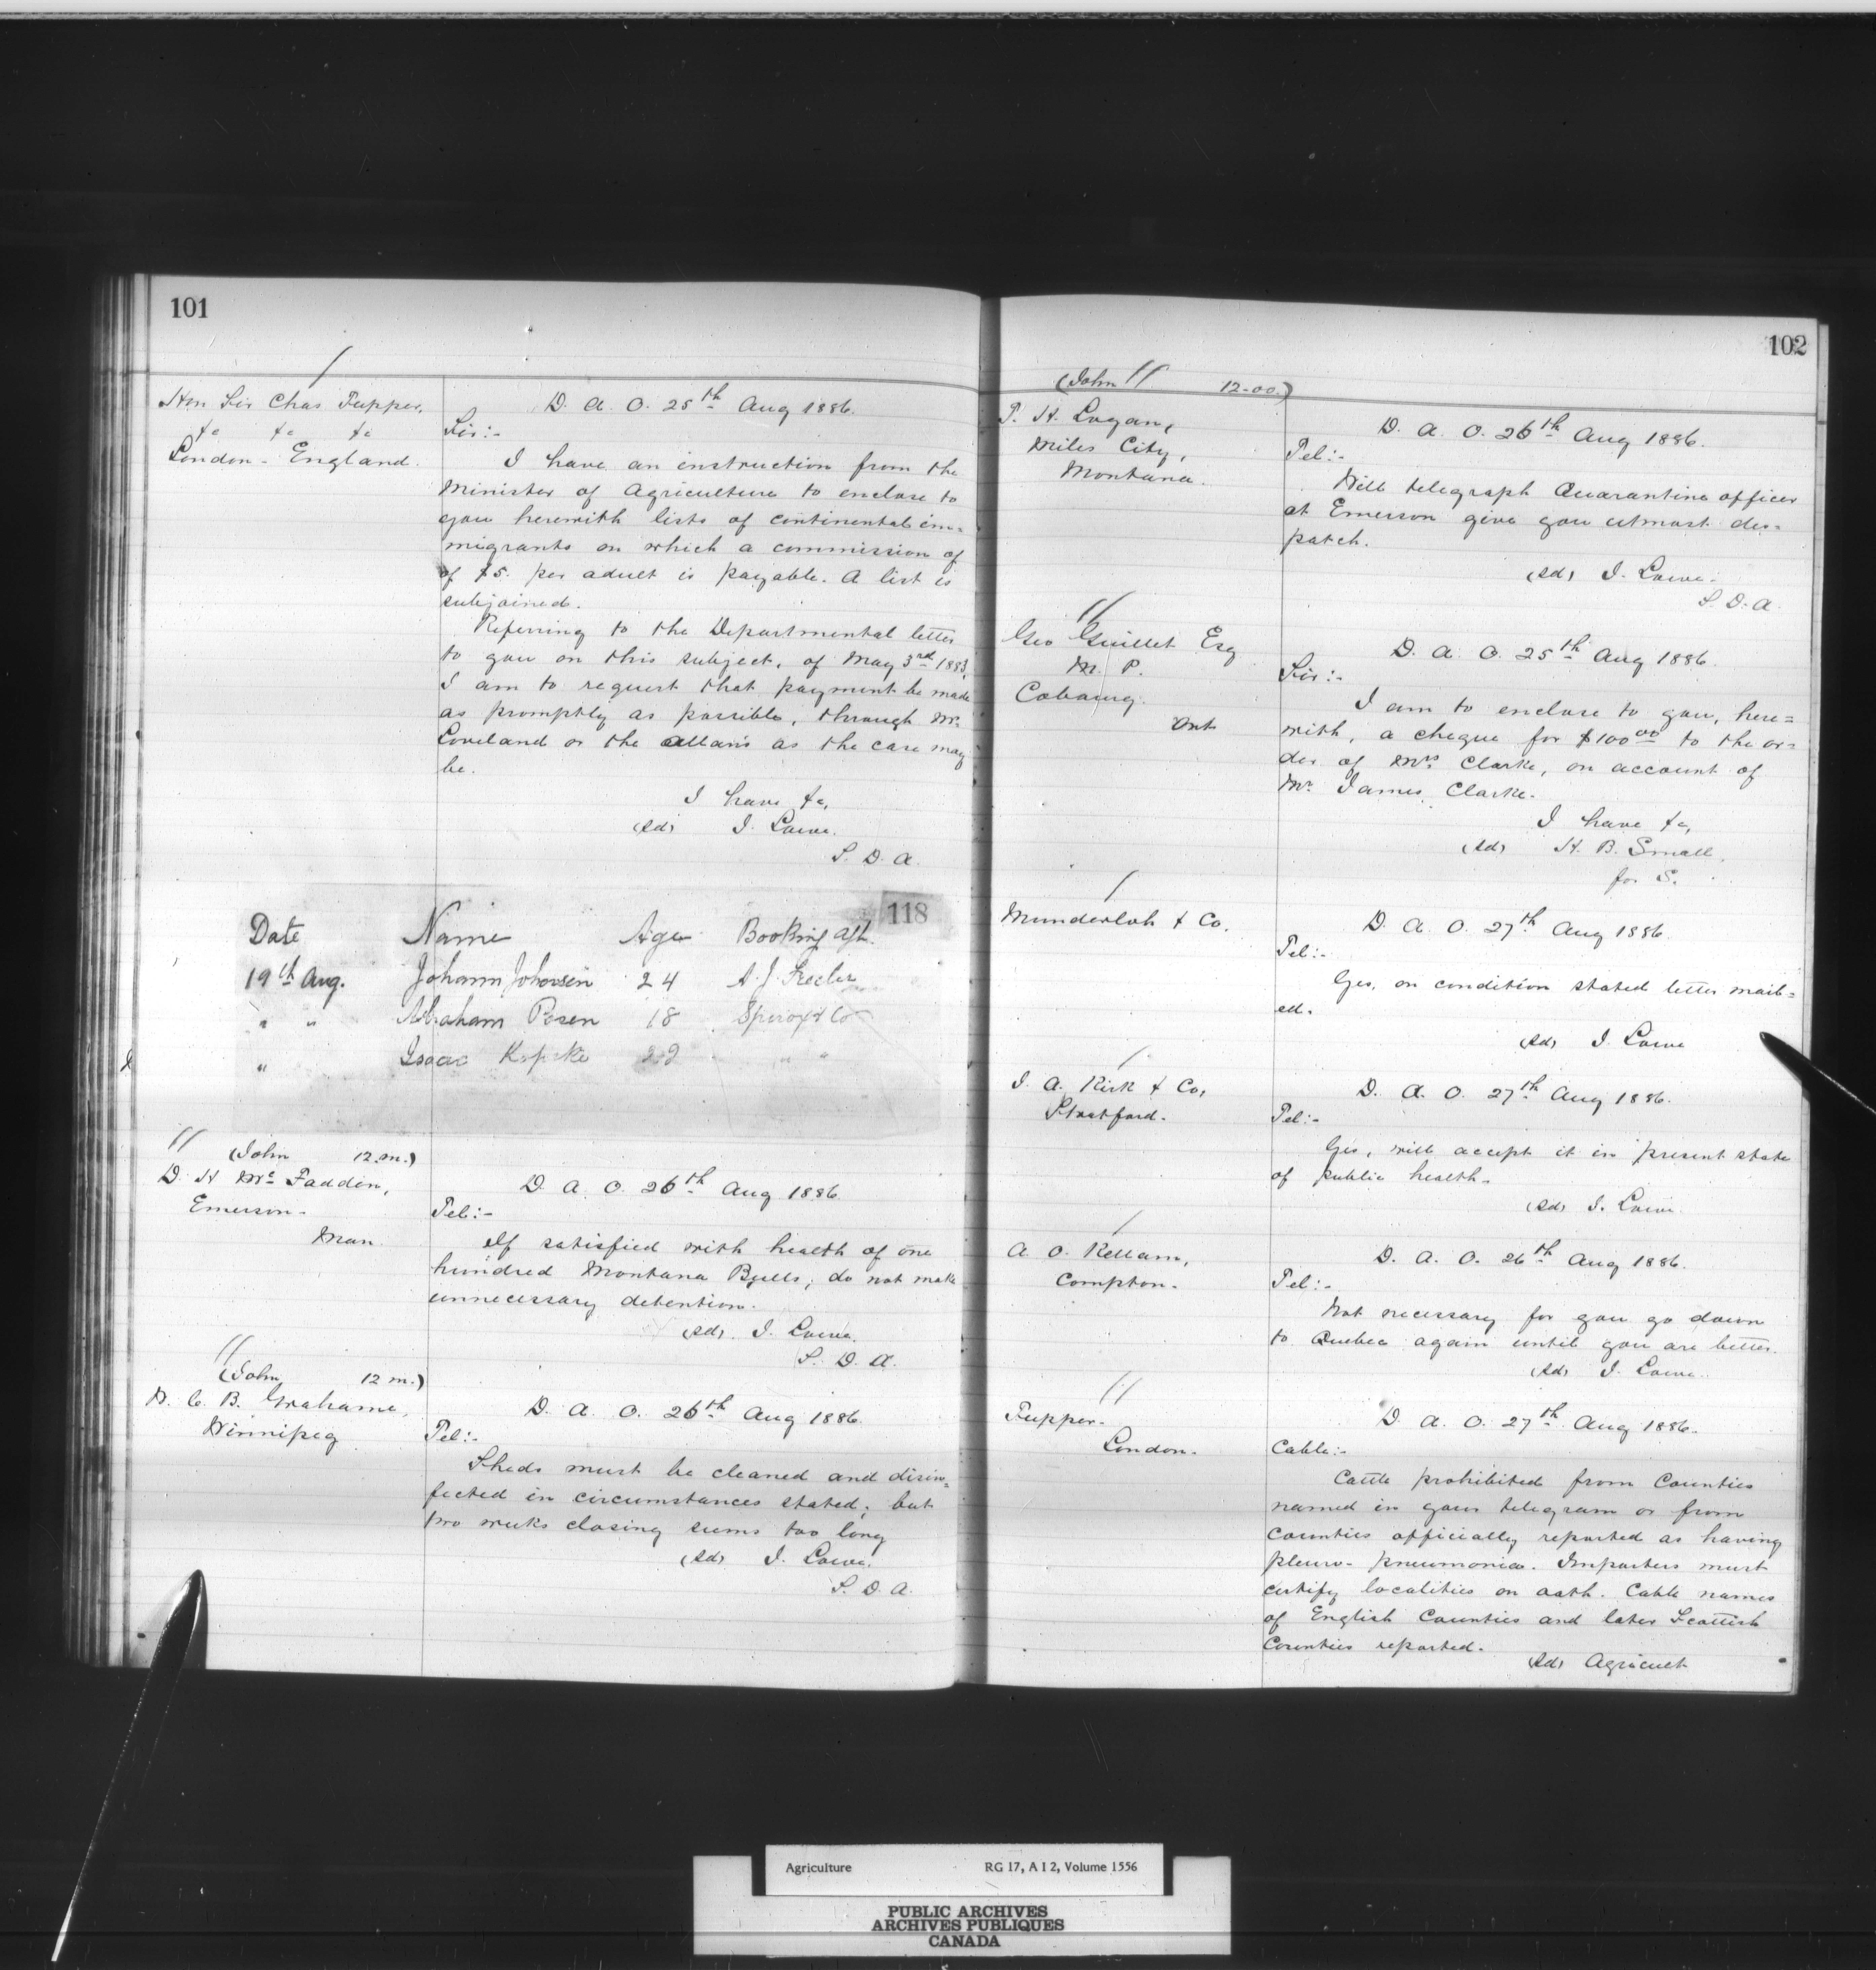 101
Hon Sir Chas Tupper,
&c &c &c
London - England.
D. A. O. 25th Aug 1886.
Sir:-
I have an instruction from the
Minister of Agriculture to enclose to
you herewith lists of continental im=
migrants on which a commission of
of $5. per adult is payable. A list is
subjoined.
Referring to the Departmental letter
to you on this subject, of May 3rd 1883,
I am to request that payment be made
as promptly as possible, through Mr.
Loveland or the Allans as the case may
be.
I have &c,
(Sd) J. Lowe.
S. D. A.
118
Date Name Age Booking Agt.
19th Aug. Johann Johansen 24 A. J.
" " Abraham Posen 18 Spiro & Co
" Isaac 22 " "
(John 12 m.)
D. H McFadden,
Emerson-
Man
D. A. O. 26th Aug 1886.
Tel:-
If satisfied with health of one
hundred Montana Bulls, do not make
unnecessary detention.
(Sd) J. Lowe.
S. D. A.
(John 12 m.)
W. C. B. Grahame,
Winnipeg
D. A. O. 26th Aug 1886.
Tel:-
Sheds must be cleaned and disin=
fected in circumstances stated; but
two weeks closing seems too long
(Sd) J. Lowe.
S. D. A.
102
(John 12-00.)
T. H. Logan,
Miles City,
Montana.
D. A. O. 26th Aug 1886.
Tel:-
Will telegraph Quarantine officer
at Emerson give you utmost des=
patch.
(Sd) J. Lowe.
S. D. A.
Geo Guillet Esq
M. P.
Cobourg.
Ont
D. A. O. 25th Aug 1886.
Sir:-
I am to enclose to you, here=
with, a cheque for $100 00 to the or=
der of Mrs Clarke, on account of
Mr. James Clarke.
I have &c,
(Sd) H. B. Small,
for S.
Munderloh & Co.
D. A. O. 27th Aug 1886.
Tel:-
Yes, on condition stated letter mail=
ed.
(Sd) J. Lowe
J. A. Kirk & Co,
Stratford.
D. A. O. 27th Aug 1886.
Tel:-
Yes, will accept it in present state
of public health.
(Sd) J. Lowe.
A. O. Kellam,
Compton.
D. A. O. 26th Aug 1886.
Tel:-
Not necessary for you go down
to Quebec again until you are better.
(Sd) J. Lowe.
Tupper-
London-
D. A. O. 27th Aug 1886.
Cable:-
Cattle prohibited from Counties
named in your telegram or from
Counties officially reported as having
pleuro-pneumonia. Importers must
certify localities on oath. Cable names
of English Counties and later Scottish
Counties reported.
(Sd) Agricult
Agriculture RG 17, A I 2, Volume 1556
PUBLIC ARCHIVES
ARCHIVES PUBLIQUES
CANADA